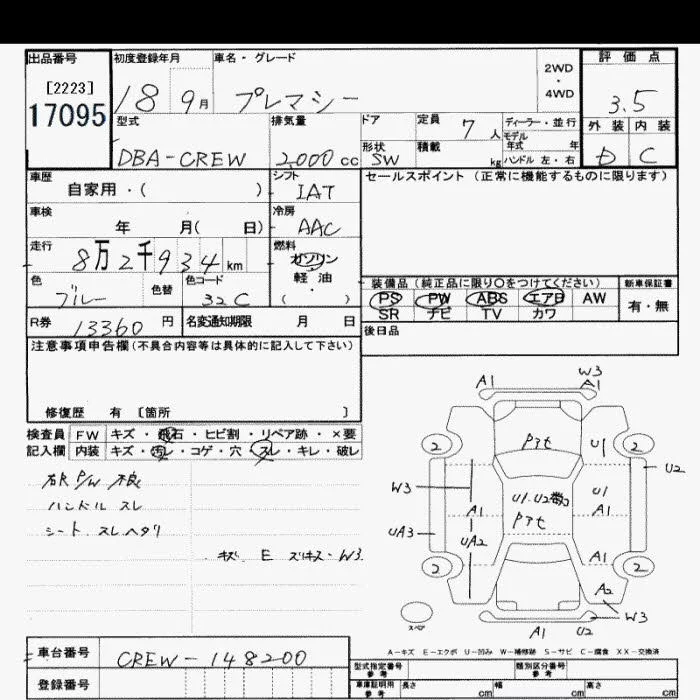 出品番号
[2223]
17095
初度登録年月
18 9月
車名・グレード
プレマシー
2WD
・
4WD
評価点
3.5
型式
DBA-CREW
排気量
2,000 cc
ドア
形状
SW
定員
7 人
積載
kg
ディーラー・並行
モデル
年式 年
ハンドル 左・右
外装 内装
D C
車歴
自家用・( )
シフト
IAT
セールスポイント(正常に機能するものに限ります)
車検
年 月( 日)
冷房
AAC
走行
8万2千934 km
燃料
ガソリン
軽油
( ・ )
色
ブルー
色替
色コード
32C
装備品(純正品に限り○をつけてください)
PS PW ABS エアB AW
SR ナビ TV カワ
新車保証書
有・無
R券
13360 円
名変通知期限 月 日
後日品
注意事項申告欄(不具合内容等は具体的に記入して下さい)
修復歴 有 [箇所 ]
検査員 FW キズ・飛石・ヒビ割・リペア跡・×要
記入欄 内装 キズ・汚レ・コゲ・穴・スレ・キレ・破レ
右R P/W 不良
ハンドル スレ
シート スレヘタリ
キズ E ズリキズ・W3
A1
W3
A1
2
Pアせ
U1
2
U2
W3
U1
U1.U2数コ
A1
A1
UA3
UA2
Pアせ
A1
2
2
A2
W3
A1 U2
スペア
A-キズ E-エクボ U-凹み W-補修跡 S-サビ C-腐食 XX-交換済
車台番号
CREW-148200
登録番号
型式指定番号
参考
類別区分番号
参考
車庫証明用
参考
長さ cm
幅 cm
高さ cm